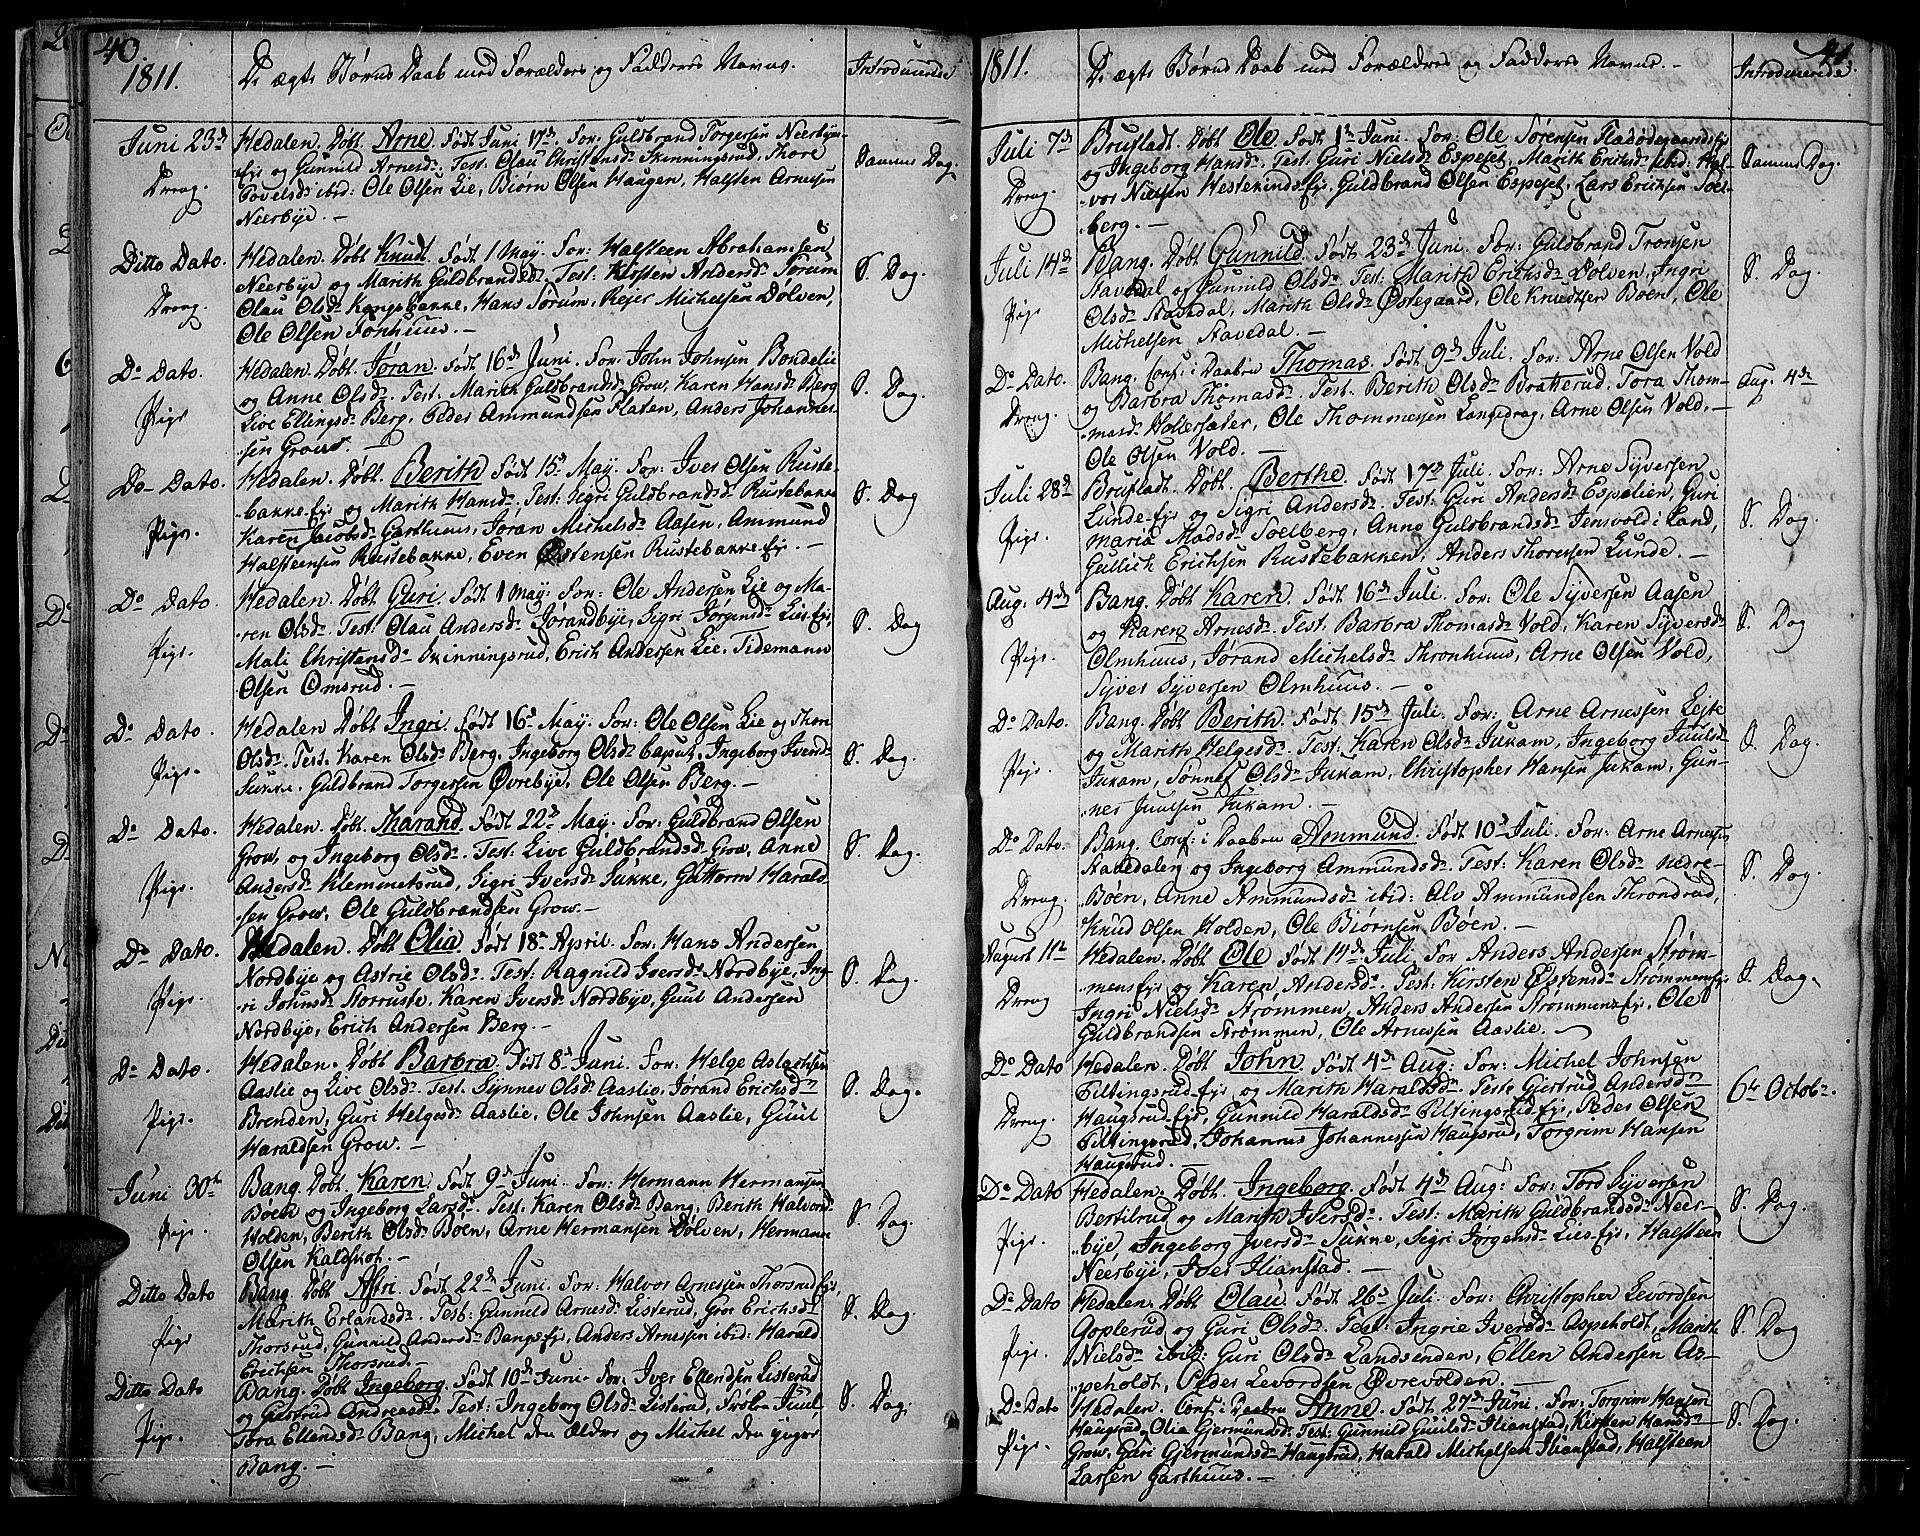 40.
1811.
De ægte Børns Daab med Forældres og Faddres Navne.
Introducerede
Juni 23d
Dreng.
Hedalen. Døbt Arne. Født Juni 17d. For: Guldbrand Torgersen Neerbye-
Ejs og Gunnild Arnesd. Test. Olau Christensd. Skinningsrud, Thore
Povelsd ibid: Ole Olsen Lie, Biørn Olsen Haugen, Halsten Arnesen
Neerbye. —
Samme Dag.
Ditto Dato.
Dreng.
Hedalen. Døbt Knudt. Født 1 May. For: Halsteen Abrahamsen
Neerbye og Marith Guldbrandsd. Test: Kirsten Andersd. Sorum
Olau Olsd. Kongsbakke, Hans Sorum, Rejer Michelsen Dølven,
Ole Olsen Jonhuus. —
S. Dag.
Do Dato.
Pige
Hedalen. Døbt Jøran. Født 16d Juni. For: John Johnsen Bondelie
og Anne Olsd. Test. Marith Guldbrandsd. Grow, Karen Hansd. Berg
Live Ellingsd. Berg, Peder Ammundsen Flaten, Anders Johannes-
sen Grow. —
S. Dag.
Do Dato.
Pige.
Hedalen. Døbt. Berith Født 15d May. For: Iver Olsen Ruste-
bakke-Ejs og Marith Hansd. Test: Sigri Guldbrandsd. Rustebakke
Karen Jacobsd. Garthuus, Jøran Michelsd. Aasen, Ammund
Halsteensen Rustebakke, Even Østensen Rustebakke-Ejs. —
S. Dag
Do Dato.
Pige.
Hedalen. Døbt Guri. Født 1 May. For: Ole Andersen Lie og Ma-
ren Olsd. Test: Olau Andersd. Jørandbye, Sigri Jørgensd. Lies-Ejs,
Mali Christensd. Skinningsrud, Erich Andersen Lie, Tidemann
Olsen Omsrud. —
S. Dag
Do Dato.
Pige.
Hedalen. Døbt Ingri. Født 16d May. For: Ole Olsen Lie og Thon
Olsd. Test. Karen Olsd. Berg, Ingeborg Olsd. Caput, Ingeborg Iversd.
Sukke, Guldbrand Torgersen Øvrebye, Ole Olsen Berg. —
S. Dag.
Do Dato.
Pige.
Hedalen. Døbt. Tharand. Født 22d May. For: Guldbrand Olsen
Grow, og Ingeborg Olsd. Test: Live Guldbrandsd. Grow, Anne
Andersd. Klemmetsrud, Sigri Iversd. Sukke, Guttorm Harald-
sen Grow, Ole Guldbrandsen Grow. —
S. Dag.
Do Dato.
Pige.
Hedalen. Døbt Olia Født 18d April. For: Hans Andersen
Nordbye og Astrie Olsd. Test. Ragnild Iversd. Nordbye, Ing-
ri Johnsd. Storrusse, Karen Iversd. Nordbye, Guul Andersen
Nordbye, Erich Andersen Berg. —
S. Dag.
Do Dato.
Pige.
Hedalen. Døbt Barbra. Født 8d Juni. For: Helge Aslachsen
Aaslie og Live Olsd. Test: Synnev Olsd. Aaslie, Jørand Erichsd.
Brenden, Guri Helgesd. Aaslie, Ole Johnsen Aaslie, Guul
Haraldsen Grow. —
S. Dag.
Juni 30th
Pige.
Bang. Døbt. Karen. Født 9d Juni. For: Hermann Hermansen
Boen og Ingeborg Larsd. Test: Karen Olsd. Bang, Berith Halvord.
Holden, Berith Olsd. Boen, Arne Hermansen Dølven, Hermann
Olsen Kaldhol. —
S. Dag.
Ditto Dato
Pige
Bang. Døbt Afri. Født 22d Juni. For: Halvor Arnessen Thorsrud Ejs,
Marith Erlandsd. Test: Gunnild Arnesd. Listerud, Groe Erichsd.
Thorsrud, Gunnild Andersd. Bangs-Ejs, Anders Arnessen ibid: Harald
Erichsen Thorsrud. —
S. Dag.
Ditto Dato
Pige.
Bang. Døbt Ingeborg. Født 10d Juni. For: Iver Ellendsen Listerud
og Giertrud Andreasd. Test: Ingeborg Olsd. Listerud, Frøken Juul,
Tora Ellendsd. Bang, Michel den ældre og Michel den yngre
Bang. —
S. Dag.
41.
1811.
De ægte Børns Daab med Forældres og Fadderes Navne. —
Introducerede.
Juli 7d
Dreng.
Brufladt. Døbt Ole. Født 1d Juni. For: Ole Sørensen Fladødegaards Ejs
og Ingeborg Hansd. Test. Guri Nielsd. Espeset, Marith Erichsd. ibid: Hal-
vor Nielsen Westerinds Ejs, Guldbrand Olsen Espeset, Lars Erichsen Soel-
berg. —
Samme Dag.
Juli 14d
Pige
Bang. Døbt Gunnild. Født 23d Juni. For: Guldbrand Tronsen
Stavedal og Gunnild Olsd. Test: Marith Erichsd. Dølven, Ingri
Olsd. Stavedal, Marith Olsd. Østegaard, Ole Knudtsen Boen, Ole
Michelsen Stavedal. —
S. Dag
Do Dato.
Dreng.
Bang. Conf: i Daaben Thomas. Født 9d Juli. For: Arne Olsen Vold
og Barbra Thomasd. Test: Berith Olsd. Bratterud, Tora Thom-
masd. Hollersæter, Ole Thommessen Langedrag, Arne Olsen Vold, —
Ole Olsen Vold. —
Aug. 4de
Juli 28d
Pige.
Brufladt. Døbt. Berthe. Født 17d Juli. For: Arne Syversen
Lunde-Ejs og Sigri Andersd. Test: Guri Andersd. Espelien, Guri
Maria Madsd. Soelberg, Anne Guldbrandsd. Jensvold i Land,
Gullich Erichsen Rustebakken, Anders Thoresen Lunde. —
S. Dag.
Aug: 4de
Pige.
Bang. Døbt Karen. Født 16d Juli. For: Ole Syversen Aasen
og Karen Arnesd. Test. Barbra Thomasd. Vold, Karen Syversd.
Olmhuus, Jørand Michelsd. Thronhuus, Arne Olsen Vold,
Syver Syversen Olmhuus. —
S. Dag
Do Dato.
Pige.
Bang. Døbt Berith. Født 15d Juli. For: Arne Arnessen Lejte
og Marith Helgesd. Test: Karen Olsd. Jukam, Ingeborg Juulsd.
Jukam, Sønnev Olsd. Jukam, Christopher Hansen Jukam, Gun-
ner Juulsen Jukam. —
S. Dag.
Do Dato.
Dreng.
Bang. Conf: i Daaben Ammund. Født 10d Juli. For: Arne Arnessen
Stavedalen og Ingeborg Ammundsd. Test: Karen Olsd. nedre-
Bøen, Anne Ammundsd. ibid: Alv Ammundsen Throndrud,
Knud Olsen Holden, Ole Biørnsen Bøen. —
S. Dag.
August 11te
Dreng
Hedalen. Døbt Ole Født 14d Juli. For Anders Andersen Strøm-
mens Ejs og Karen Andersd. Test: Kirsten Østensd. Strømmens Ejs
Ingri Nielsd. Strømmen, Anders Andersen Strømmens Ejs, Ole
Guldbrandsen Strømmen, Ole Arnessen Aaslie. —
S. Dag.
Do Dato
Dreng.
Hedalen. Døbt John. Født 4d Aug: For: Michel Johnsen
Piltingsrud-Ejs og Marith Haraldsd. Test: Giertrud Andersd.
Haugsrud-Ejs, Gunnild Haraldsd. Piltingsrud-Ejs, Peder Olsen
Piltingsrud, Johannes Johannessen Haugsrud, Torgrim Hansen
Haugsrud. —
6te Octobr.
Do Dato
Pige.
Hedalen. Døbt. Ingeborg. Født 4d Aug: For: Tord Syversen
Bertilrud og Marith Iversd. Test: Marith Guldbrandsd. Neer-
bye, Ingeborg Iversd. Sukne, Sigri Jørgensd. Lies-Ejs, Halsteen
Neerbye, Iver Ilianstad. —
S. Dag.
Do Dato
Pige.
Hedalen. Døbt Olau. Født 26d Juli. For: Christopher Levordsen
Goplerud og Guri Olsd. Test: Ingrie Iversd. Aspeholdt, Marith
Nielsd. ibid: Guri Olsd. Landsenden, Ellen Andersen As-
peholdt, Peder Levordsen Øvrevolden. —
S. Dag
Do Dato
Pige.
Hedalen. Conf. i Daaben Anne. Født 27d Juni. For: Torgrim Hansen
Haugsrud og Olia Gjermundsd. Test: Gunnild Guulsd. Ilianstad, Kirsten Hansd.
Grow, Guri Gjermundsd. Haugsrud, Harald Michelsen Ilianstad, Halsteen
Larsen Garthuus. —
S. Dag.